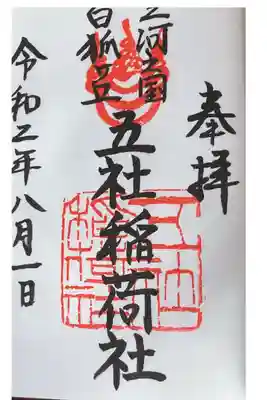 奉拝
三河国
白狐
五社稲荷社
令和二年八月一日